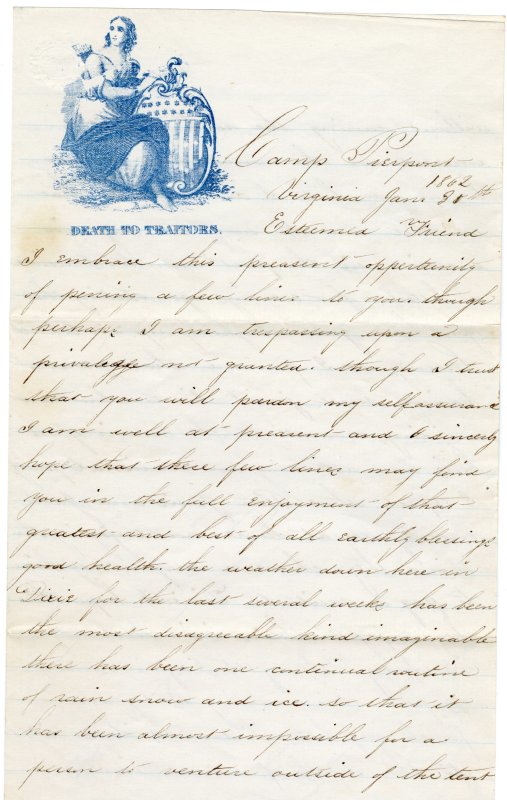 DEATH TO TRAITORS.
Camp Pierpont
1862
Virginia Jan. 31th
Esteemed Friend
I embrace this preasent oppertunity
of pening a few lines to you. though
perhaps I am trespassing upon a
privaledge not granted. though I trust
that you will pardon my selfassurance
I am well at preasent and I sincerly
hope that these few lines may find
you in the full enjoyment of that
greatest and best of all earthly blessings
good health. the weather down here in
Dixie for the last several weeks has been
the most disagreeable kind imaginable
there has been one continual routine
of rain snow and ice. so that it
has been almost impossible for a
person to venture outside of the tent